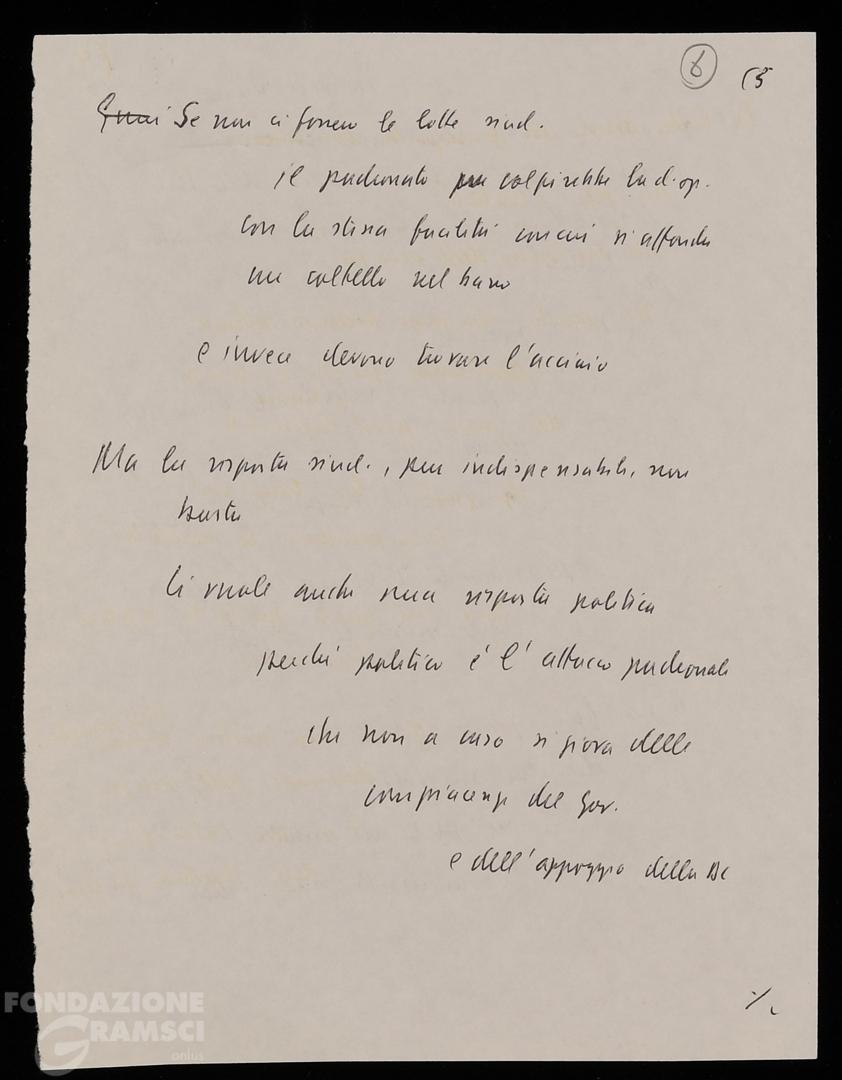 6
Se non ci fossero le lotte sind.
il padronato colpirebbe la cl. op.
con la stessa facilità con cui si affonda
un coltello nel burro
e invece devono trovare l'acciaio
Ma la risposta sind., pur indispensabile, non
basta
Ci vuole anche una risposta politica
perché politico è l'attacco padronale
che non a caso si giova delle
compiacenze del Gov.
e dell'appoggio della DC
./.
FONDAZIONE
GRAMSCI
onlus